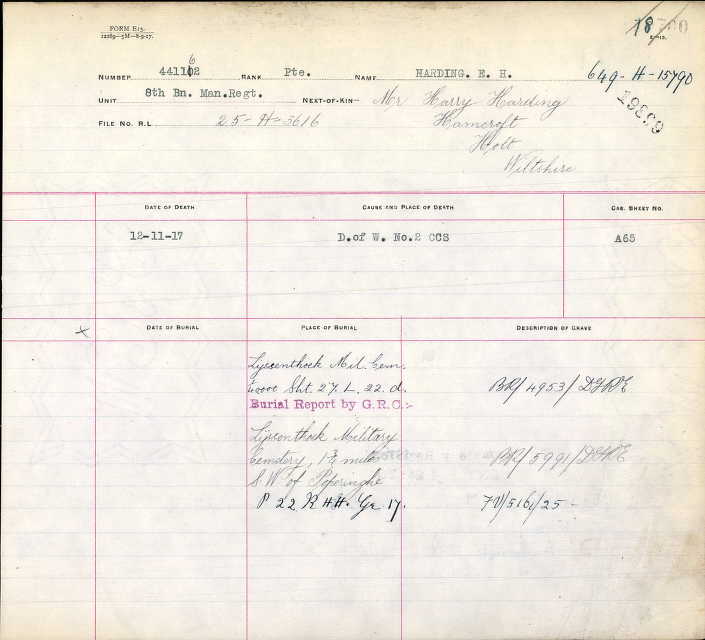 FORM E15.
12289—5M—8-9-17.
18700
E.H.S.
6
NUMBER 441102 RANK Pte. NAME HARDING. E. H.
649-H-15790
UNIT 8th Bn. Man.Regt. NEXT-OF-KIN— Mr Harry Harding
19899
FILE NO. R.L. 25-H-5616 Hamcroft
Holt
Wiltshire
DATE OF DEATH CAUSE AND PLACE OF DEATH CAS. SHEET NO.
12-11-17 D.of W. No.2 CCS A65
x DATE OF BURIAL PLACE OF BURIAL DESCRIPTION OF GRAVE
Lyssenthoek Mil. Cem.
Sht. 27. L. 22. d. BR/4953/DGRE
Burial Report by G.R.C:-
Lijssenthoek Military
Cemetery, 1¾ miles BR/5991/DGRE
S.W of Poperinghe
P 22 R HH. Gr 17. 7V/5161/25-